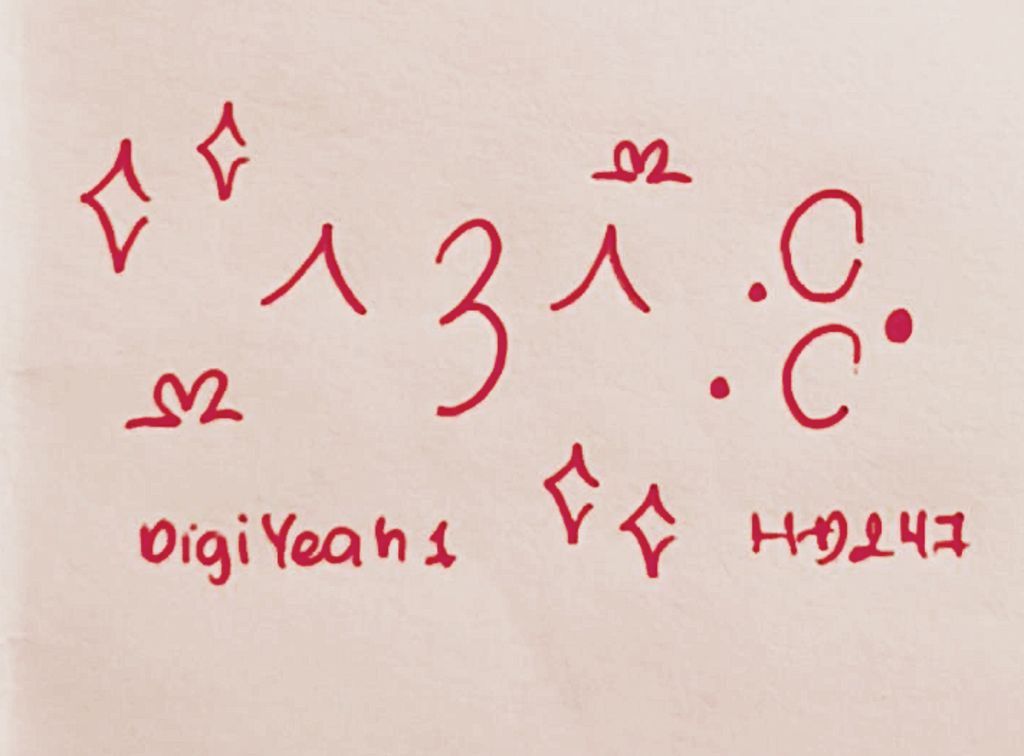 ^ 3 ^ .C
. C .
DigiYeah1 HD247